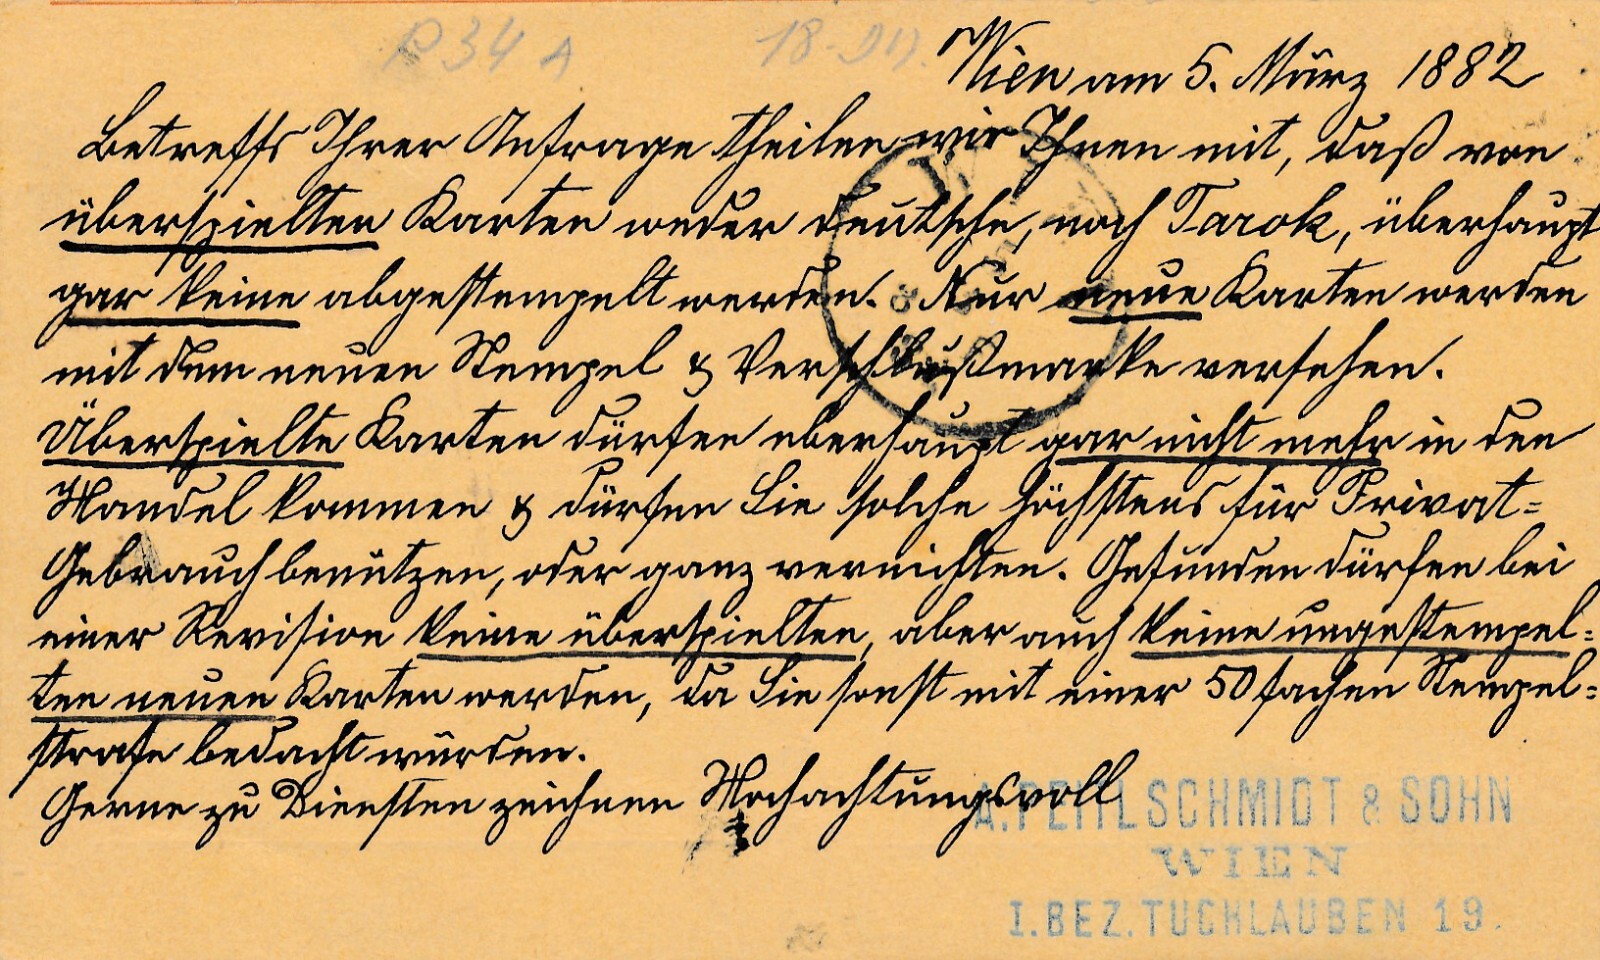 P 34 A
Wien am 5. März 1882
Betreffs Ihrer Anfrage theilen wir Ihnen mit, daß von
überspielten Karten weder deutsche, noch Tarok, überhaupt
gar keine abgestempelt werden. Nur neue Karten werden
mit dem neuen Stempel & Verschlußmarke versehen.
Überspielte Karten dürfen uberhaupt gar nicht mehr in den
Handel kommen & dürfen Sie solche höchstens für Privat=
Gebrauch benützen, oder ganz vernichten. Gefunden dürfen bei
einer Revision keine überspielten, aber auch keine ungestempel=
ten neuen Karten werden, da Sie sonst mit einer 50 fachen Stempel=
strafe bedacht würden.
Gerne zu Diensten zeichnen Hochachtungsvoll
A. PEITLSCHMIDT & SOHN
WIEN
I. BEZ. TUCHLAUBEN 19.